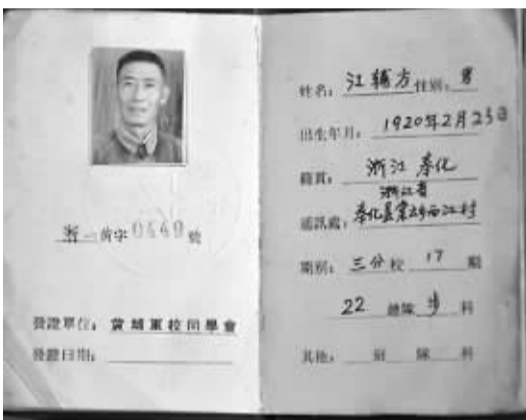 浙一黄字0449號
發證單位:黄埔軍校同學會
發證日期:
姓名:江輔方性别:男
出生年月:1920年2月23日
籍貫:浙江 奉化
浙江省
通訊處:奉化县棠云乡西江村
期别:三分校 17 期
22 總隊 步 科
其他: 班 隊 科